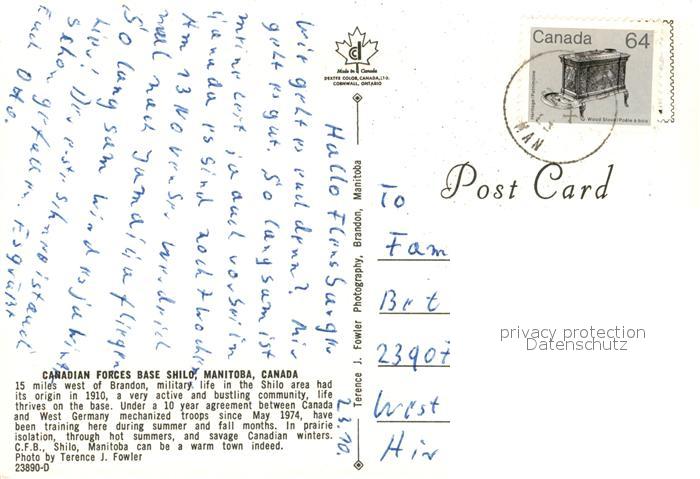 Hallo Flensburger
Wie geht es euch denn? Mir
geht es gut. So langsam ist
meine Zeit ja auch vorbei in
Canada es sind noch 2 Wochen
Am 13 November werde ich
mal nach Jamaica fliegen
So langsam wird es ja
hier. Der erste Schnee ist auch
schon gefallen. Es grüßt
Euch Otto.
23.10.
CANADIAN FORCES BASE SHILO, MANITOBA, CANADA
15 miles west of Brandon, military life in the Shilo area had
its origin in 1910, a very active and bustling community, life
thrives on the base. Under a 10 year agreement between Canada
and West Germany mechanized troops since May 1974, have
been training here during summer and fall months. In prairie
isolation, through hot summers, and savage Canadian winters.
C.F.B., Shilo, Manitoba can be a warm town indeed.
Photo by Terence J. Fowler
23890-D
Made in Canada
DEXTER COLOR, CANADA, LTD.
CORNWALL, ONTARIO
Terence J. Fowler Photography, Brandon, Manitoba
Canada 64
Heritage / Patrimoine
Wood Stove / Poêle à bois
MAN
Post Card
To
Fam
23907
West
privacy protection
Datenschutz